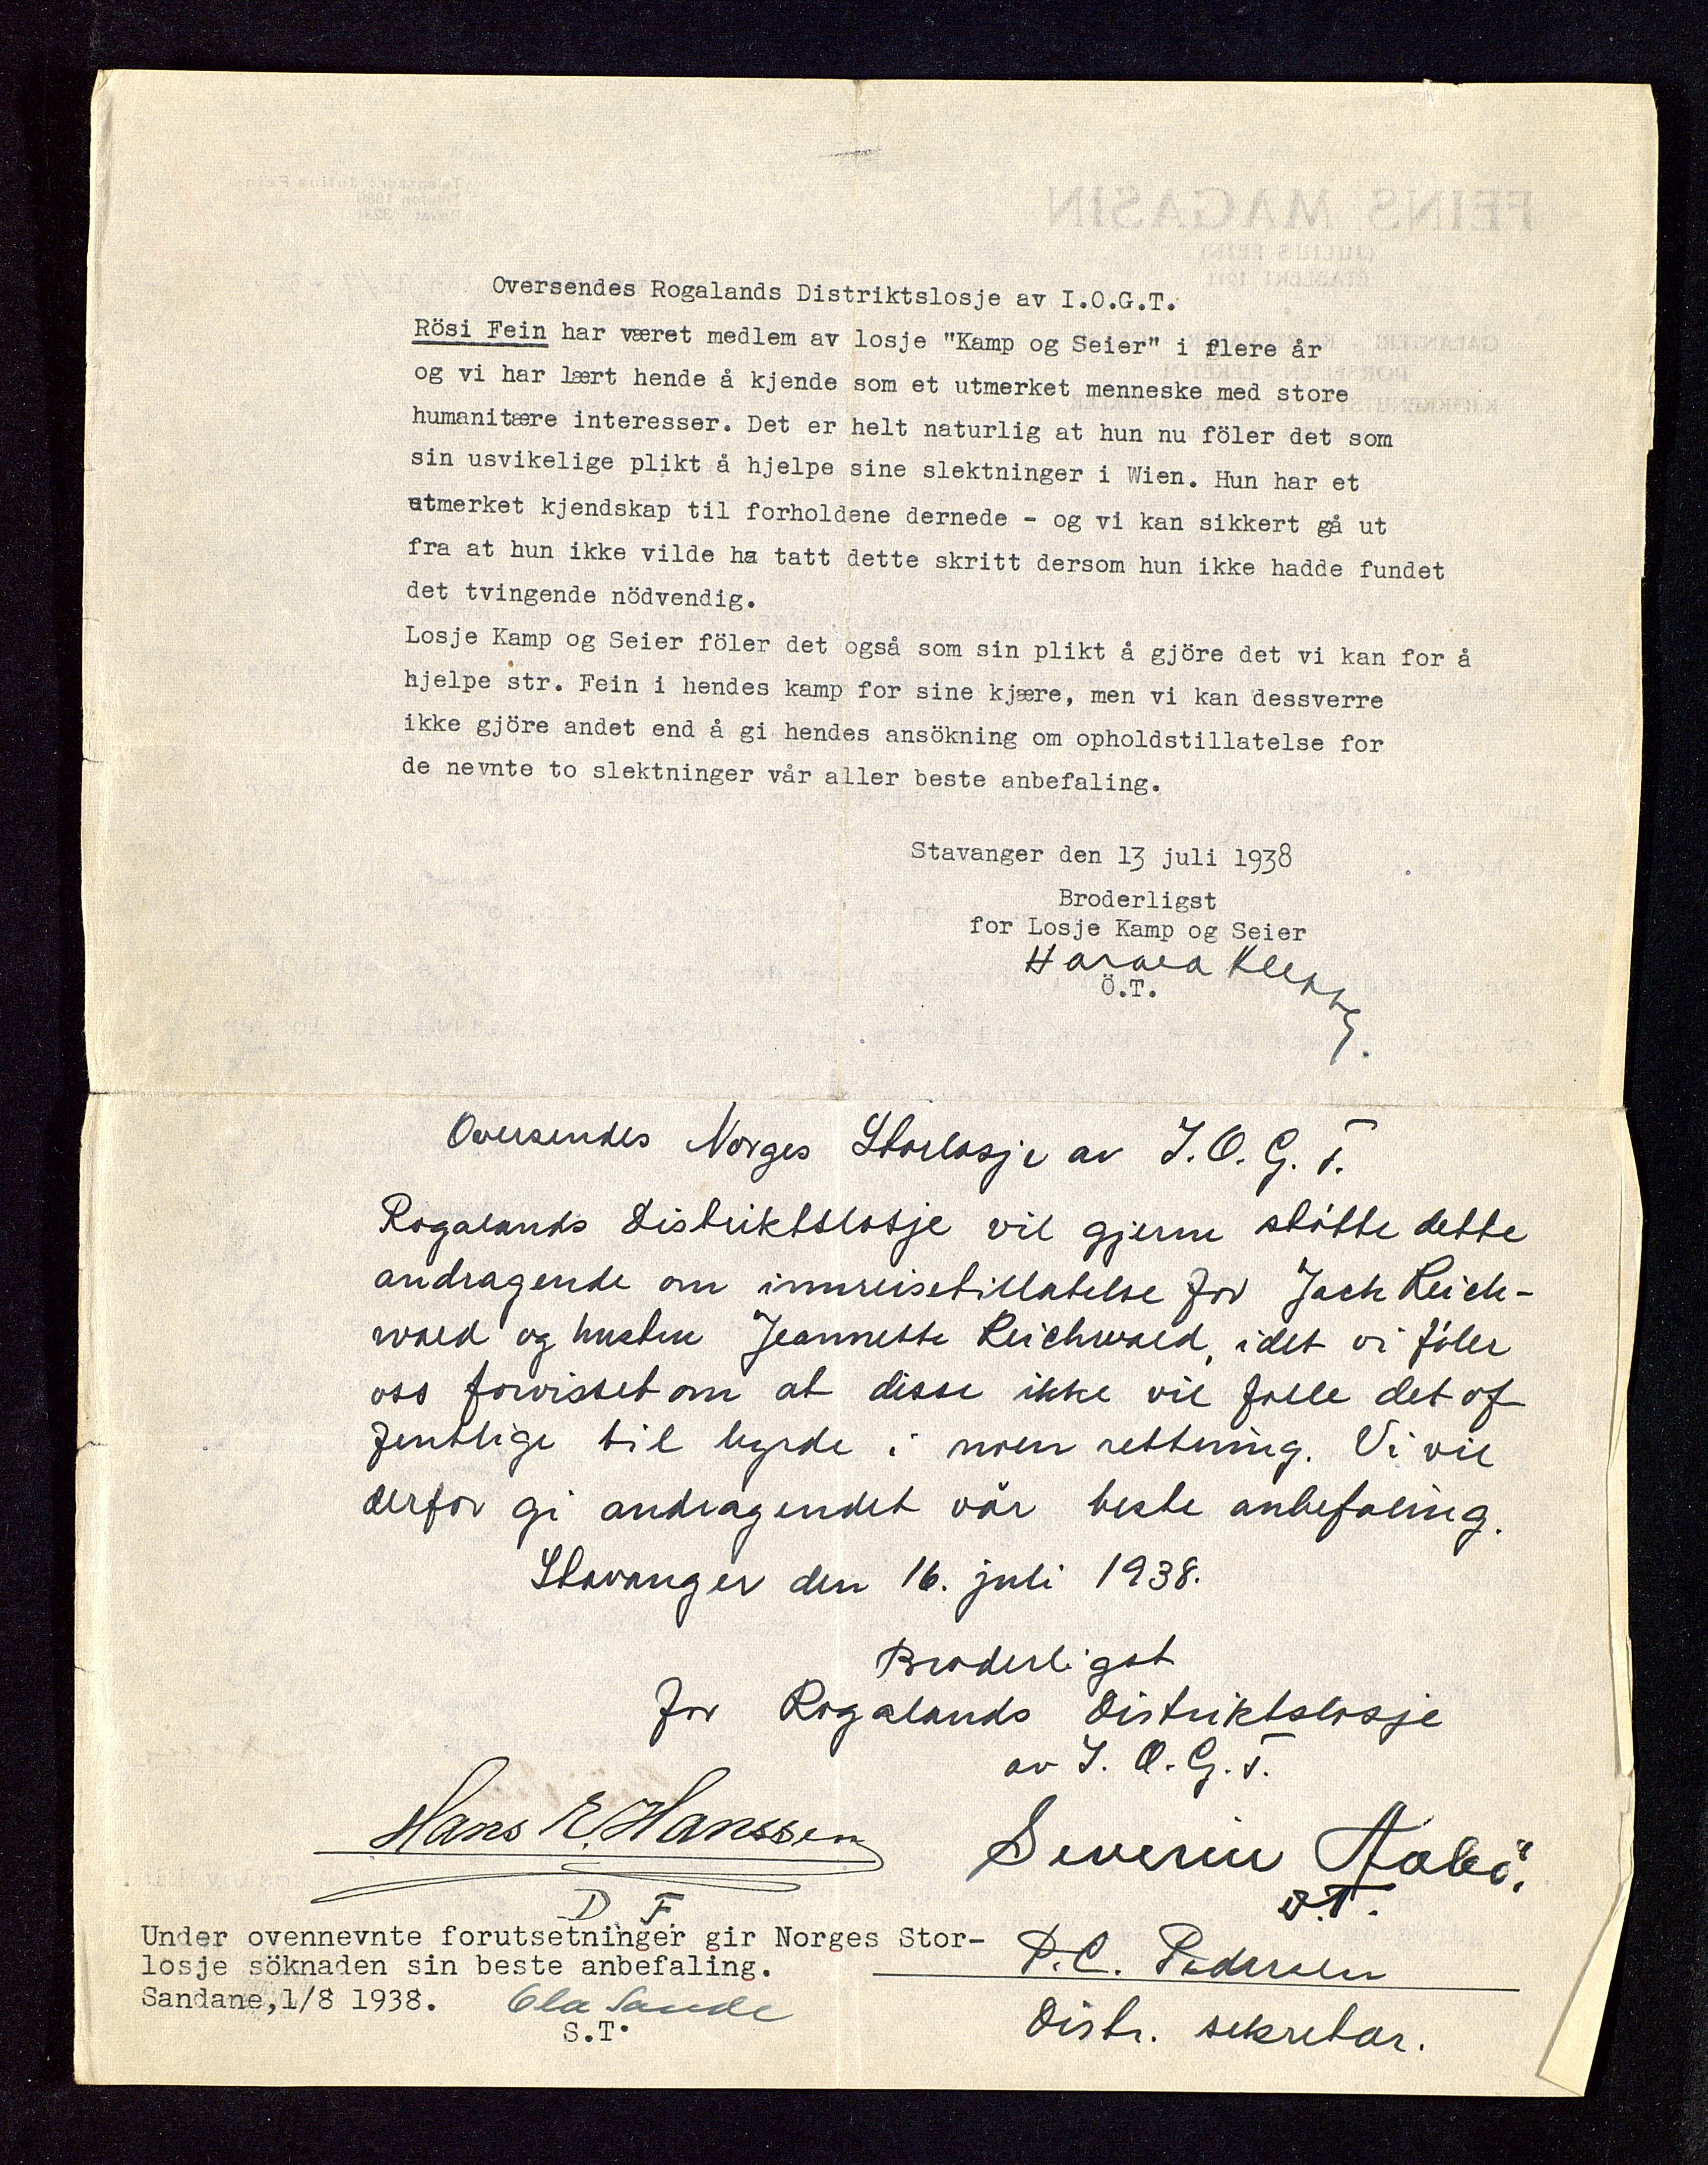 Oversendes Rogalands Distriktslosje av I.O.G.T.
Rösi Fein har været medlem av losje "Kamp og Seier" i flere år
og vi har lært hende å kjende som et utmerket menneske med store
humanitære interesser. Det er helt naturlig at hun nu föler det som
sin usvikelige plikt å hjelpe sine slektninger i Wien. Hun har et
utmerket kjendskap til forholdene dernede - og vi kan sikkert gå ut
fra at hun ikke vilde ha tatt dette skritt dersom hun ikke hadde fundet
det tvingende nödvendig.
Losje Kamp og Seier föler det også som sin plikt å gjöre det vi kan for å
hjelpe str. Fein i hendes kamp for sine kjære, men vi kan dessverre
ikke gjöre andet end å gi hendes ansökning om opholdstillatelse for
de nevnte to slektninger vår aller beste anbefaling.
Stavanger den 13 juli 1938
Broderligst
for Losje Kamp og Seier
Harald
Ö.T.
Oversendes Norges Storlosje av I.O.G.T.
Rogalands Distriktslosje vil gjerne støtte dette
andragende om innreisetillatelse for Jack Reich-
wald og hustru Jeannette Reichwald, idet vi føler
oss forvisset om at disse ikke vil falle det of-
fentlige til byrde i noen retning. Vi vil
derfor gi andragendet vår beste anbefaling.
Stavanger den 16. juli 1938.
Broderligst
for Rogalands Distriktslosje
av I.O.G.T.
Hans E. Hanssen
D.F.
Severin Aabö.
D.T.
P.C. Pedersen
Distr. sekretær.
Under ovennevnte forutsetninger gir Norges Stor-
losje söknaden sin beste anbefaling.
Sandane, 1/8 1938. Ola Sande
S.T.
FEINS MAGASIN
(JULIUS FEIN)
ETABLERT 1911